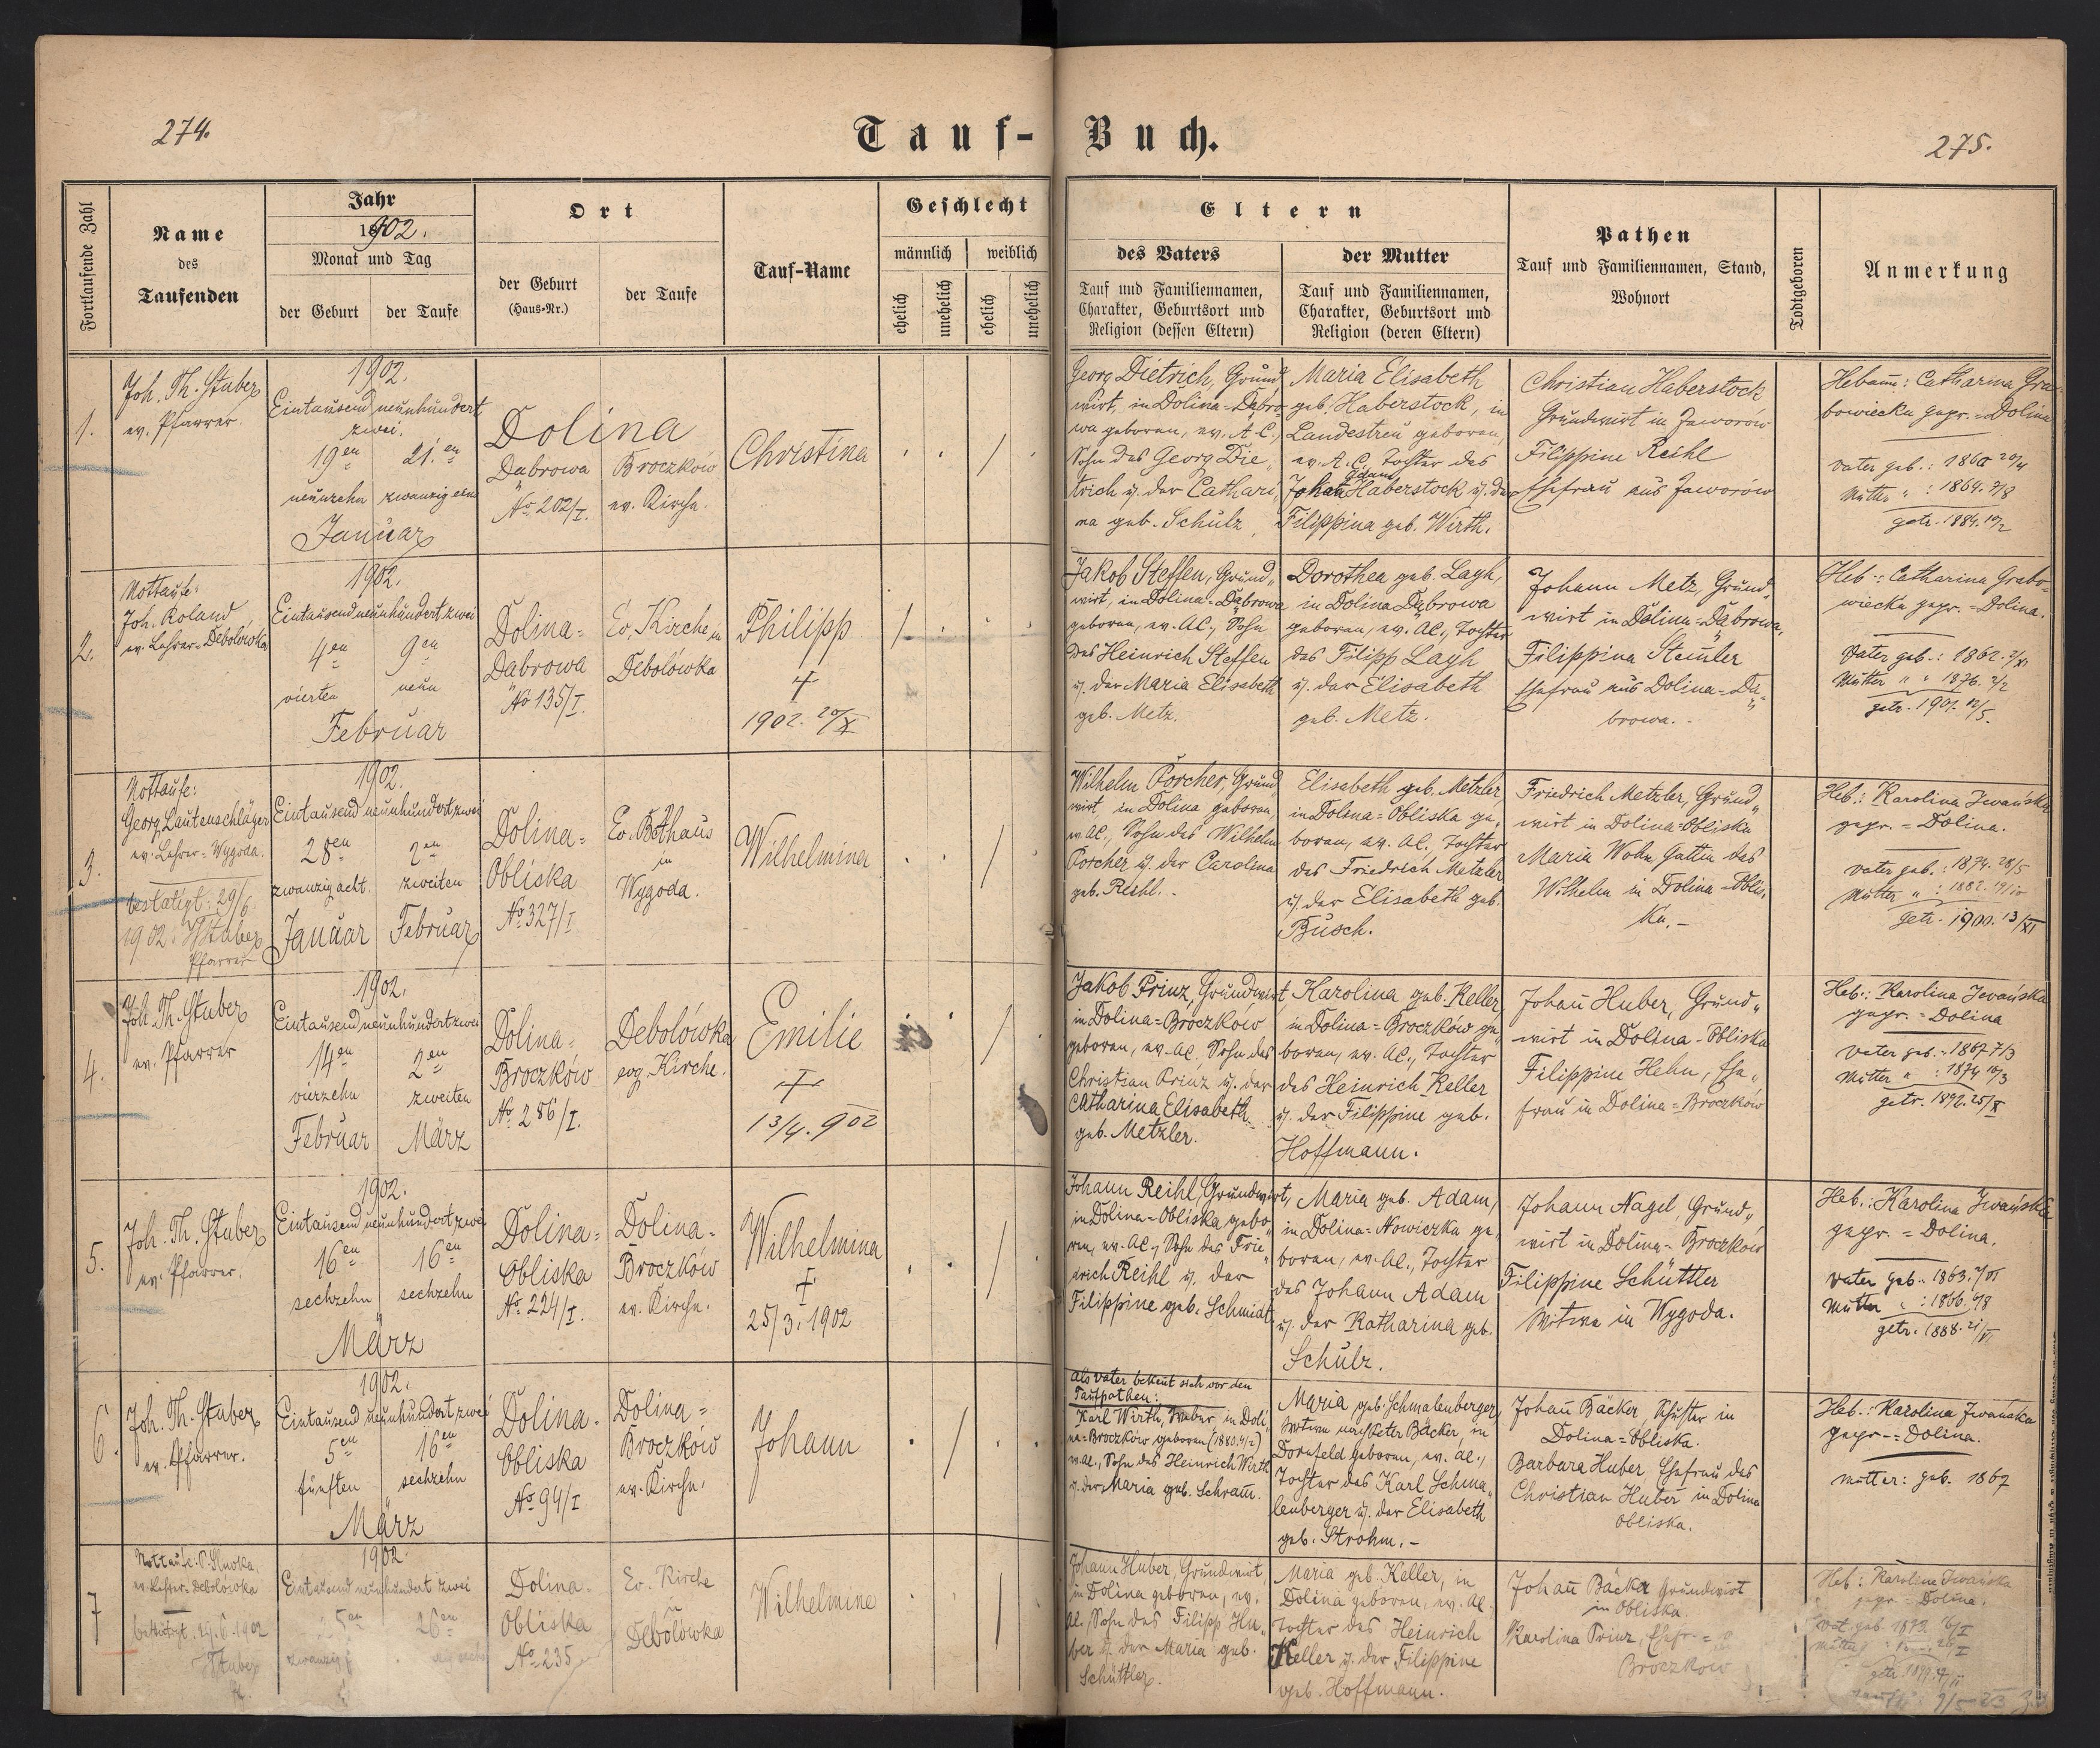 274.
Tauf-Buch.
275.
Fortlaufende Zahl
Name
des
Taufenden
Jahr
1902.
Monat und Tag
der Geburt
der Taufe
Ort
der Geburt
(Haus-Nr.)
der Taufe
Tauf-Name
Geschlecht
männlich
weiblich
ehelich
unehelich
ehelich
unehelich
Eltern
des Vaters
Tauf und Familiennamen,
Charakter, Geburtsort und
Religion (dessen Eltern)
der Mutter
Tauf und Familiennamen,
Charakter, Geburtsort und
Religion (deren Eltern)
Pathen
Tauf und Familiennamen, Stand,
Wohnort
Todtgeboren
Anmerkung
1.
Joh. Th. Stuber
ev. Pfarrer.
1902.
Eintausend neunhundert
zwei.
19en
21.en
neunzehn
zwanzig eins
Januar
Dolina
Dąbrowa
No. 202/I.
Broczków
ev. Kirche.
Christina
Georg Dietrich, Grund
wirt, in Dolina-Dąbro-
wa geboren, ev. A.C.,
Sohn des Georg Die„
trich u. der Cathari„
na geb. Schulz
Maria Elisabeth
geb. Haberstock, in
Landestreu geboren,
ev. A.C., Tochter des
Adam
Johann Haberstock u. der
Filippina geb. Wirth.
Christian Haberstock
Grundwirt in Jaworów
Filippine Reihl
Ehefrau aus Jaworów
Hebamme: Catharina Gra-
bowiecka gepr. = Dolina
Vater geb.: 1860 20/4
Mutter „ : 1864.
getr. 1884.
2.
Nottaufe:
Joh. Roland
ev. Lehrer-Debolówka
1902.
Eintausend neunhundert zwei
4en
9en
vierten
neun
Februar
Dolina=
Dąbrowa
No 135/I.
Ev. Kirche in
Debolówka
Philipp
†
1902. 20/X
Jakob Steffen, Grund„
wirt, in Dolina-Dąbrowa
geboren, ev. AC., Sohn
des Heinrich Steffen
u. der Maria Elisabeth
geb. Metz.
Dorothea geb. Layh,
in Dolina Dąbrowa
geboren, ev. AC., Tochter
des Filipp Layh
u. der Elisabeth
geb. Metz.
Johann Metz, Grund„
wirt in Dolina-Dąbrowa,
Filippina Stemler
Ehefrau aus Dolina-Dą-
browa.-
Heb.: Catharina Grabo-
wiecka gepr. = Dolina.
Vater geb.: 1862.
Mutter „ „ 1876. 2/2
getr. 1901. 12/5.
3.
Nottaufe:
Georg Lautenschläger
ev. Lehrer = Wygoda.
bestätigt: 29/6.
1902. JThStuber
Pfarrer
1902.
Eintausend neunhundert zwei
28en
2en
zwanzig acht.
zweiten
Januar
Februar
Dolina=
Obliska
No 327/I
Ev. Bethaus
in
Wygoda.
Wilhelmina
Wilhelm Porcher, Grund
wirt, in Dolina geboren,
ev. AC., Sohn des Wilhelm
Porcher u. der Carolina
geb. Reihl.-
Elisabeth geb. Metzler,
in Dolina=Obliska ge„
boren, ev. AC., Tochter
des Friedrich Metzler
u. der Elisabeth geb.
Busch.
Friedrich Metzler, Grund„
wirt in Dolina-Obliska
Maria Wohn Gattin des
Wilhelm in Dolina-Oblis„
ka.-
Heb.: Karolina Iwańska
gepr. = Dolina.
Vater geb.: 1874. 28/5
Mutter „ : 1882.
getr. 1900. 13/XI
4.
Joh. Th. Stuber
ev. Pfarrer
1902.
Eintausend neunhundert zwei
14en
2en
vierzehn
zweiten
Februar
März
Dolina=
Broczków
No. 286/I.
Debolówka
evg. Kirche.
Emilie
†
13/4.902
Jakob Prinz, Grundwirt,
in Dolina=Broczków
geboren, ev. AC, Sohn des
Christian Prinz u. der
Catharina Elisabeth
geb. Metzler.
Karolina geb. Keller,
in Dolina=Broczków ge„
boren, ev. AC., Tochter
des Heinrich Keller
u. der Filippine geb.
Hoffmann.
Johann Huber, Grund„
wirt in Dolina-Obliska
Filippine Hehn, Ehe„
frau in Dolina=Broczków
Heb.: Karolina Iwańska
gepr. = Dolina
Vater geb.: 1867 7/3
Mutter „ : 1874 10/3
getr. 1892. 25/X
5.
Joh. Th. Stuber
ev. Pfarrer.
1902.
Eintausend neunhundert zwei
16en
16en
sechzehn
sechzehn
März
Dolina=
Obliska
No. 224/I.
Dolina=
Broczków
ev. Kirche.
Wilhelmina
†
25/3.1902
Johann Reihl, Grundwirt,
in Dolina=Obliska gebo„
ren, ev. AC., Sohn des Frie„
drich Reihl u. der
Filippine geb. Schmidt
Maria geb. Adam,
in Dolina=Nowiczka ge„
boren, ev. AC., Tochter
des Johann Adam
u. der Katharina geb.
Schulz.
Johann Nagel, Grund„
wirt in Dolina-Broczków
Filippine Schüttler
Witwe in Wygoda.
Heb.: Karolina Iwańska
gepr. = Dolina.
Vater geb.: 1863.
Mutter „ : 1866.
getr. 1888. 21/VI
6.
Joh. Th. Stuber
ev. Pfarrer.
1902.
Eintausend neunhundert zwei
5en
16en
fünften
sechzehn
März
Dolina-
Obliska
No 94/I
Dolina=
Broczków
ev. Kirche.
Johann
Als Vater bekennt sich vor den
Taufpathen:
Karl Wirth, Weber, in Doli„
na=Broczków geboren (1880.4/2)
ev. AC., Sohn des Heinrich Wirth
u. der Maria geb. Schramm.
Maria geb. Schmalenberger,
Witwe nach Peter Bäcker, in
Dornfeld geboren, ev. AC.,
Tochter des Karl Schma„
lenberger u. der Elisabeth
geb. Strohm.-
Johann Bäcker, Schuster in
Dolina=Obliska.
Barbara Huber, Ehefrau des
Christian Huber in Dolina
Obliska.
Heb.: Karolina Iwańska
gepr.-= Dolina.
Mutter: geb. 1867
7
Nottaufe: P.
ev. Lehrer= Debolówka
bestätigt. 29.6.1902
Stuber
1902.
Eintausend neunhundert zwei
25en
26en
zwanzig
Dolina-
Obliska
No. 235
Ev. Kirche
in
Debolówka
Wilhelmine
Johann Huber, Grundwirt,
in Dolina geboren, ev.
AC, Sohn des Filipp Hu„
ber u. der Maria geb.
Schüttler.
Maria geb. Keller, in
Dolina geboren, ev. AC.
Tochter des Heinrich
Keller u. der Filippine
geb. Hoffmann.
Johann Bäcker Grundwirt
in Obliska.
Karolina Prinz, Ehefr. =
Broczków
Heb: Karolina Iwańska
gepr. = Dolina.
Vat. geb. 1873
Mutter
getr. 1899.